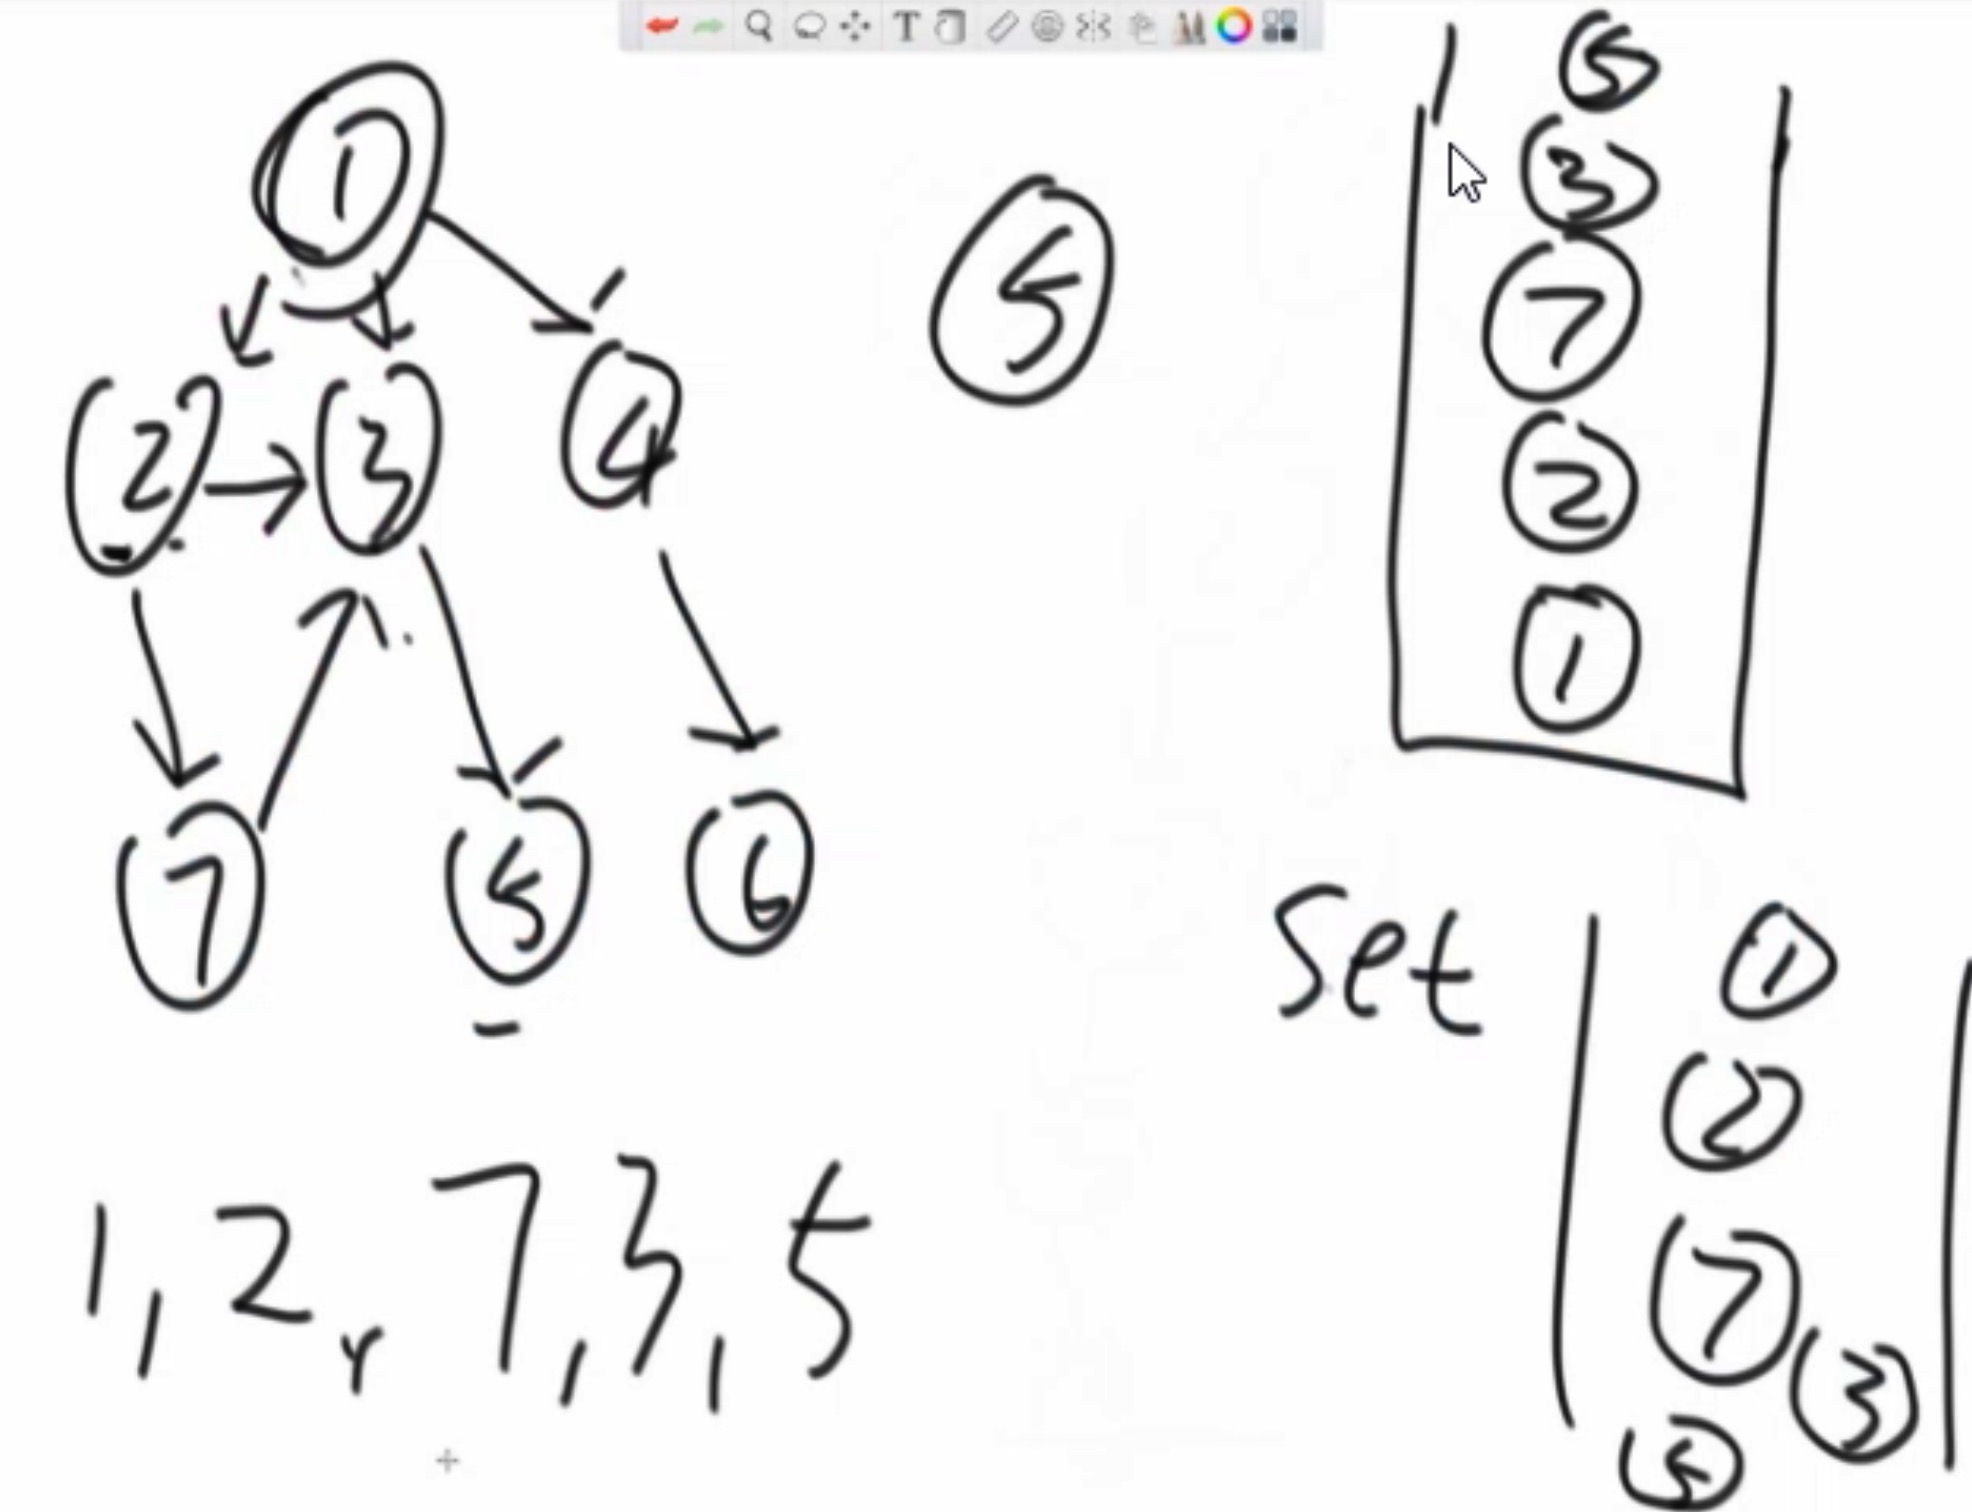 T
1
2 3 4
7 5 6
5
5
3
7
2
1
Set
1
2
7
3
5
1, 2, 7, 3, 5